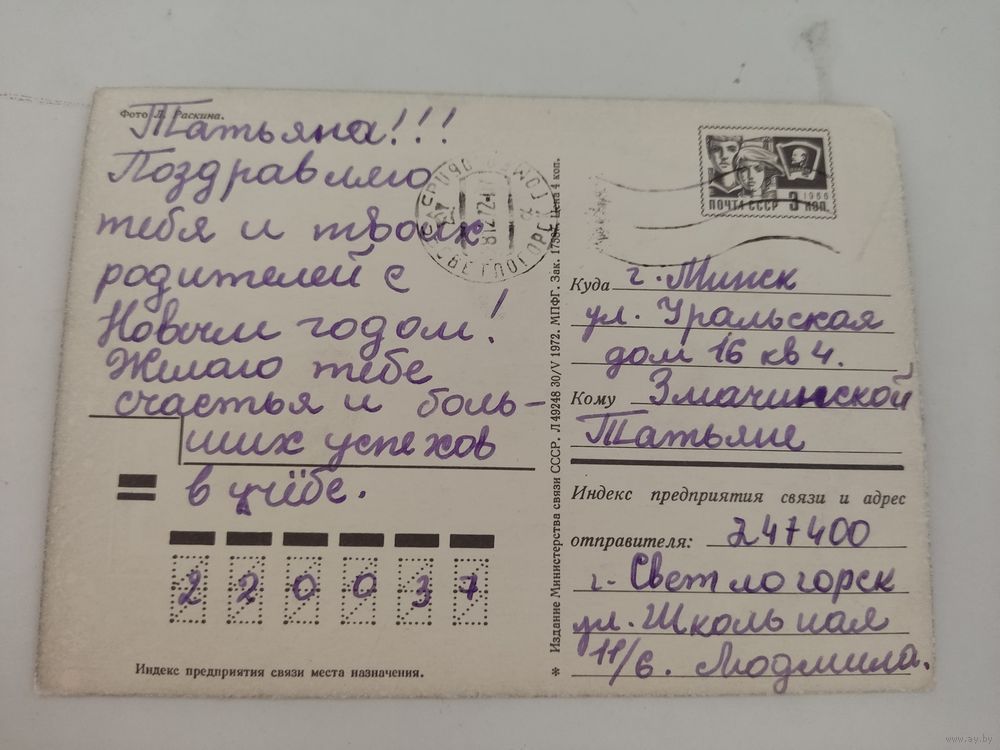 Фото Л. Раскина.
Татьяна!!!
Поздравляю
тебя и твоих
родителей с
Новым годом!
Желаю тебе
счастья и боль-
ших успехов
в учёбе.
220037
Индекс предприятия связи места назначения.
* Издание Министерства связи СССР. Л 49248 30/V 1972. МПФГ. Зак. Цена 4 коп.
СВЕТЛОГОРСК
ПОЧТА СССР 3 КОП.
1966
Куда г. Минск
ул. Уральская
дом 16 кв 4.
Кому Змачинской
Татьяне
Индекс предприятия связи и адрес
отправителя: 247400
г. Светлогорск
ул. Школьная
11/6. Людмила.
www.ay.by